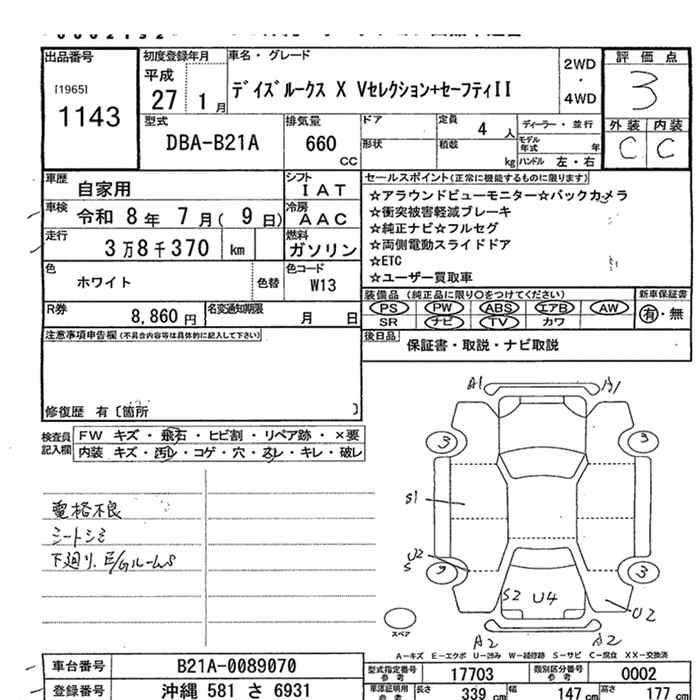 出品番号
[1965]
1143
初度登録年月
平成
27 1月
車名・グレード
デイズルークス X Vセレクション+セーフティII
2WD
・
4WD
評価点
3
外装 内装
C C
型式
DBA-B21A
排気量
660
CC
ドア
定員
4 人
ディーラー・並行
形状
積載
kg
モデル年式 年
ハンドル 左・右
車歴
自家用
シフト
IAT
車検
令和 8年 7月( 9日)
冷房
AAC
走行
3万8千370 km
燃料
ガソリン
色
ホワイト
色替
色コード
W13
R券
8,860 円
名変通知期限
月 日
セールスポイント(正常に機能するものに限ります)
☆アラウンドビューモニター☆バックカメラ
☆衝突被害軽減ブレーキ
☆純正ナビ☆フルセグ
☆両側電動スライドドア
☆ETC
☆ユーザー買取車
装備品 (純正品に限り○をつけてください)
PS PW ABS エアB AW
SR ナビ TV カワ
新車保証書
有・無
後日品
保証書・取説・ナビ取説
注意事項申告欄(不具合内容等は具体的に記入して下さい)
修復歴 有〔箇所 〕
検査員記入欄
FW キズ・飛石・ヒビ割・リペア跡・×要
内装 キズ・汚レ・コゲ・穴・スレ・キレ・破レ
電格不良
シートシミ
下廻り、E/GルームS
A1 A1
3 3
S1
U2
S
3 3
S2 U4
U2
A2 A2
スペア
A－キズ E－エクボ U－凹み W－補修跡 S－サビ C－腐食 XX－交換済
車台番号
B21A-0089070
登録番号
沖縄 581 さ 6931
型式指定番号
参考
17703
類別区分番号
参考
0002
車庫証明用
参考
長さ 339 cm
幅 147 cm
高さ 177 cm